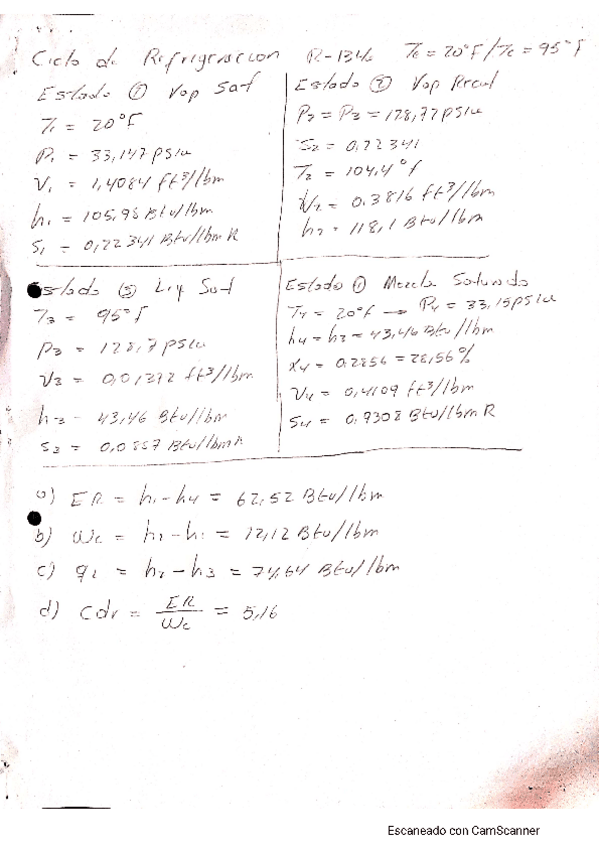 Ciclo de Refrigeracion R-134a Te = 20°F / Tc = 95°F
Estado ① Vap Sat
T1 = 20°F
P1 = 33,147 psia
V1 = 1,4084 ft³/lbm
h1 = 105,98 Btu/lbm
S1 = 0,22341 Btu/lbm R
Estado ② Vap Recal
P2 = P3 = 128,77 psia
S2 = 0,22341
T2 = 104,4°f
V2 = 0.3816 ft³/lbm
h2 = 118,1 Btu/lbm
Estado ③ Liq Sat
T3 = 95°F
P3 = 128,7 psia
V3 = 0,01372 ft³/lbm
h3 = 43,46 Btu/lbm
S3 = 0,0887 Btu/lbm R
Estado Mezcla Saturado
T4 = 20°f → P4 = 33,15 psia
h4 = h3 = 43,46 Btu/lbm
X4 = 0.2856 = 28,56%
V4 = 0,4109 ft³/lbm
S4 = 0,9308 Btu/lbm R
a) ER = h1 - h4 = 62,52 Btu/lbm
b) Wc = h2 - h1 = 12,12 Btu/lbm
c) q2 = h2 - h3 = 74,64 Btu/lbm
d) Cdr = ER/Wc = 5,16
Escaneado con CamScanner